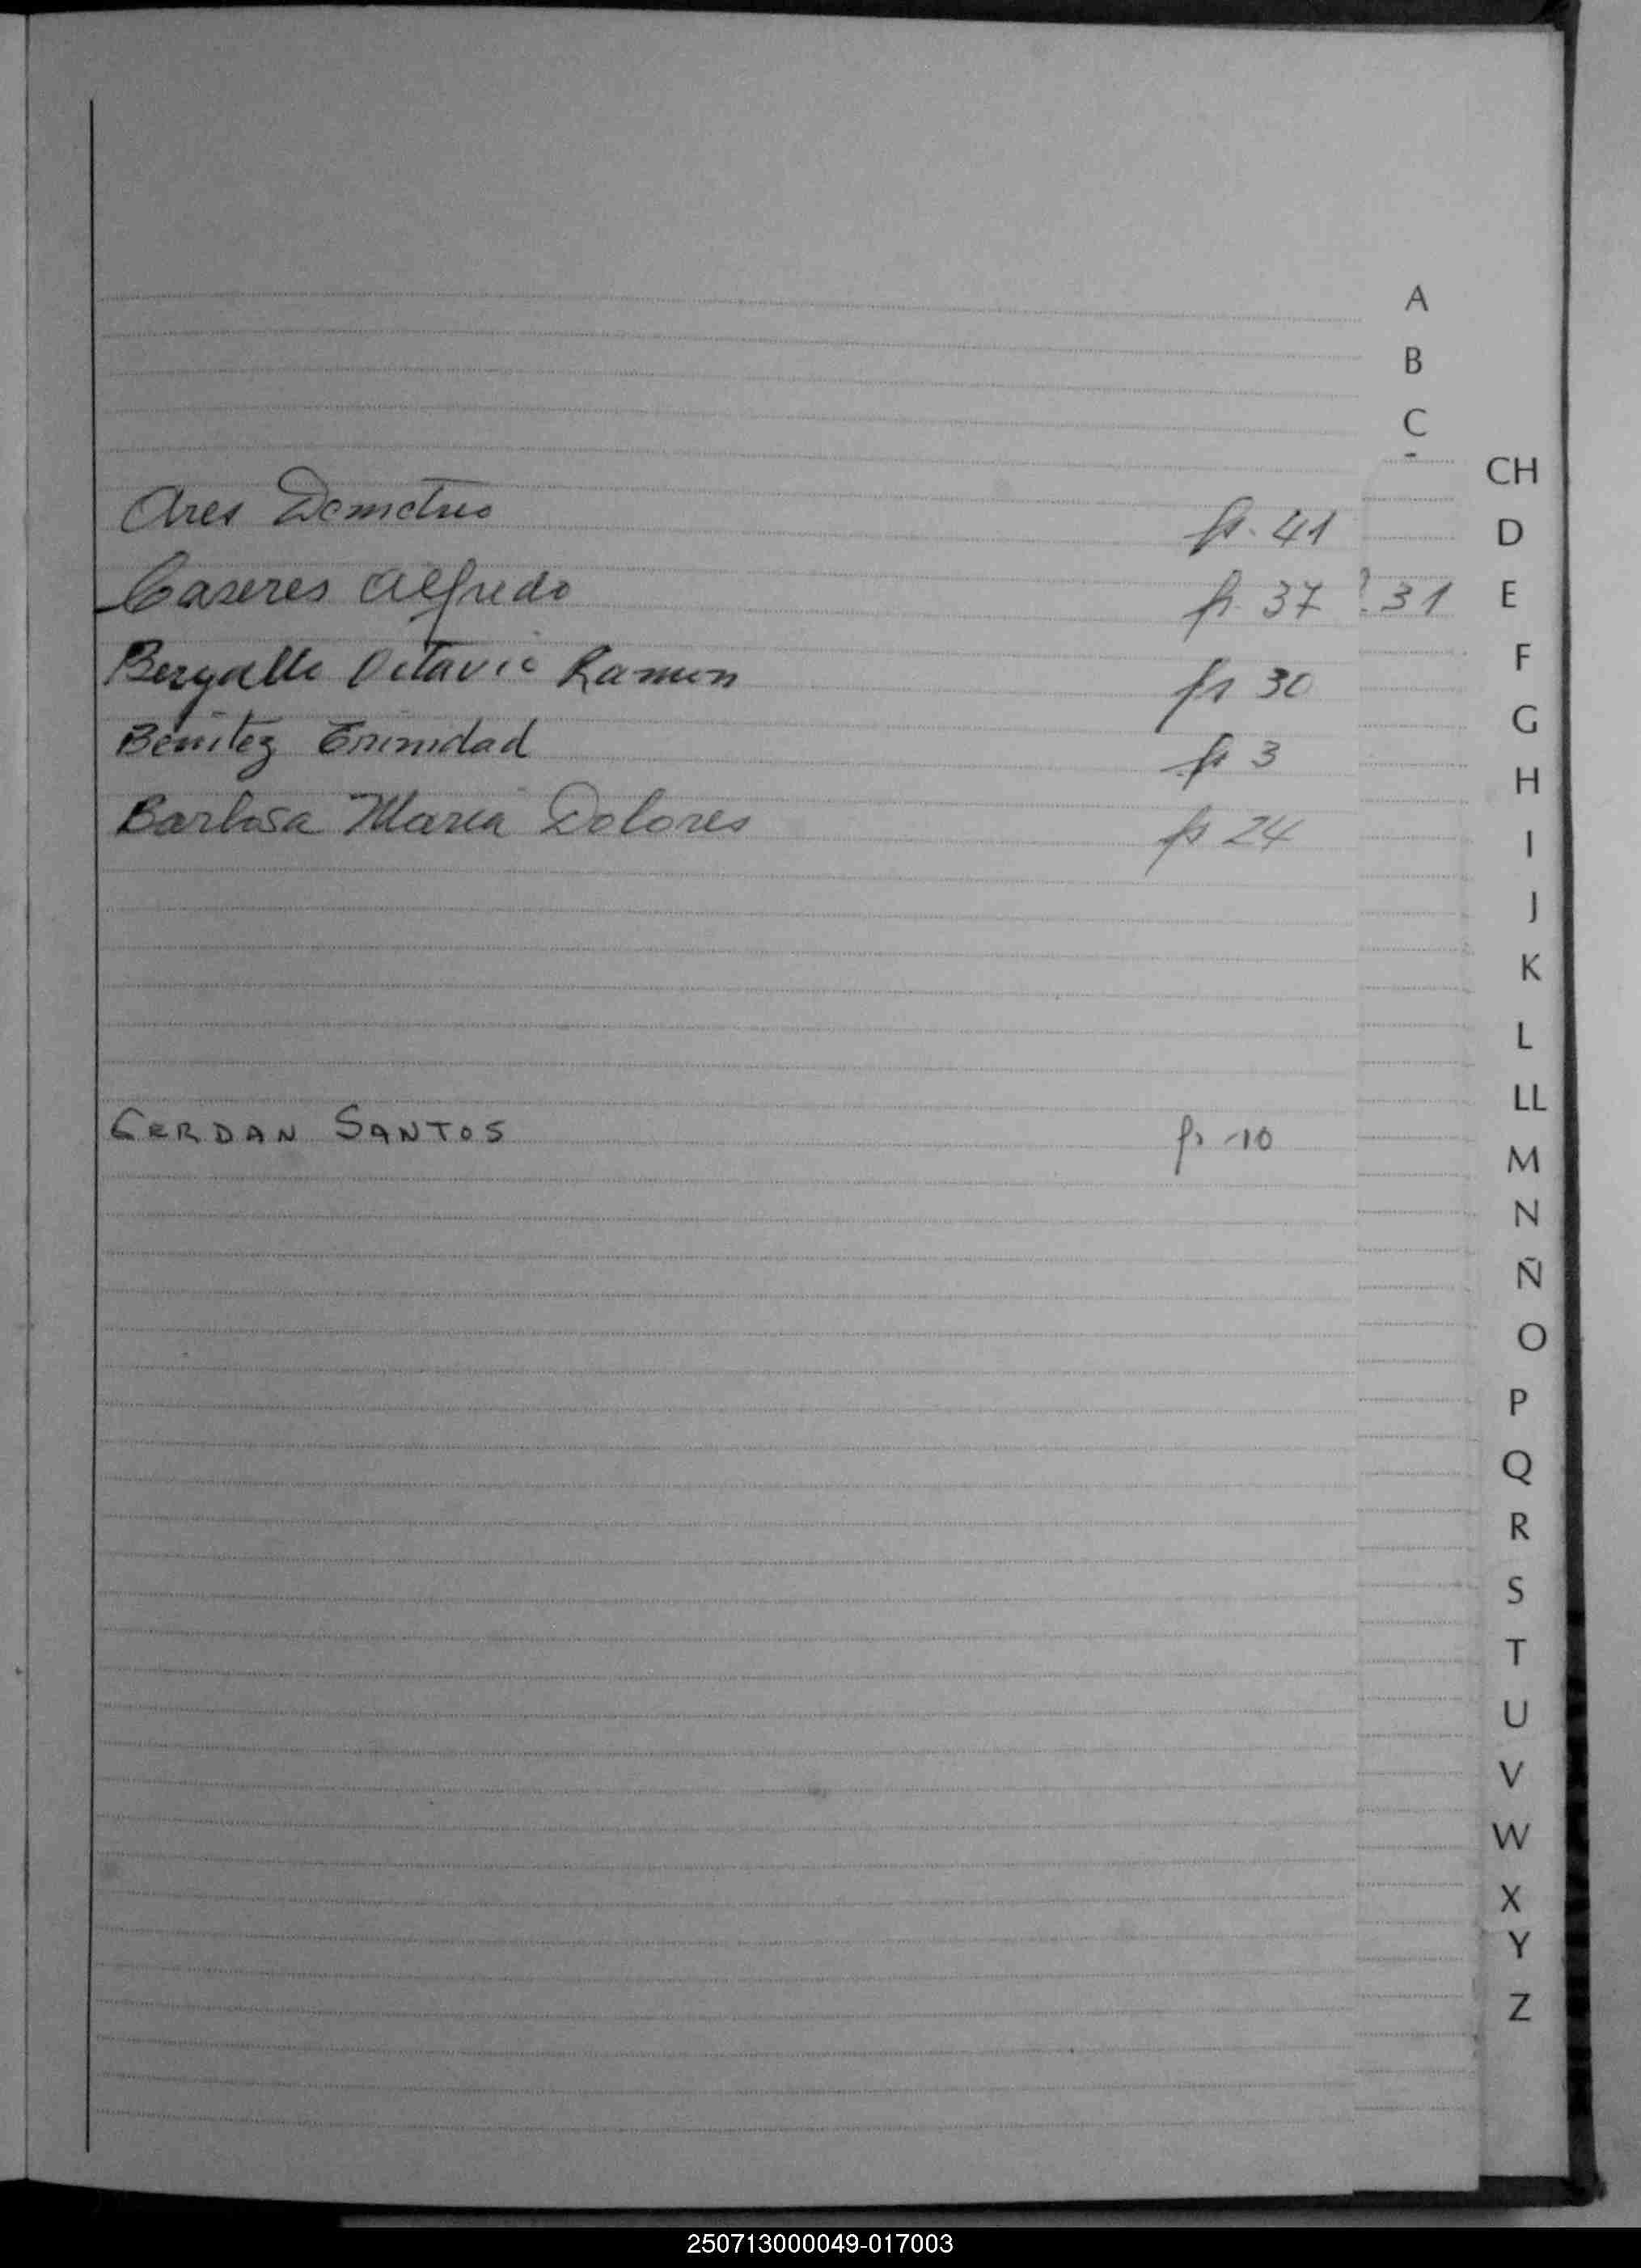 A
B
C
CH
Ares Demetrio fs. 41
D
Caseres Alfredo fs. 37 ? 31
E
F
Bergallo Octavio Ramon fs 30
G
Benitez Trinidad fs 3
H
Barbosa Maria Dolores fs 24
I
J
K
L
LL
CERDAN SANTOS fs 10
M
N
Ñ
O
P
Q
R
S
T
U
V
W
X
Y
Z
250713000049-017003